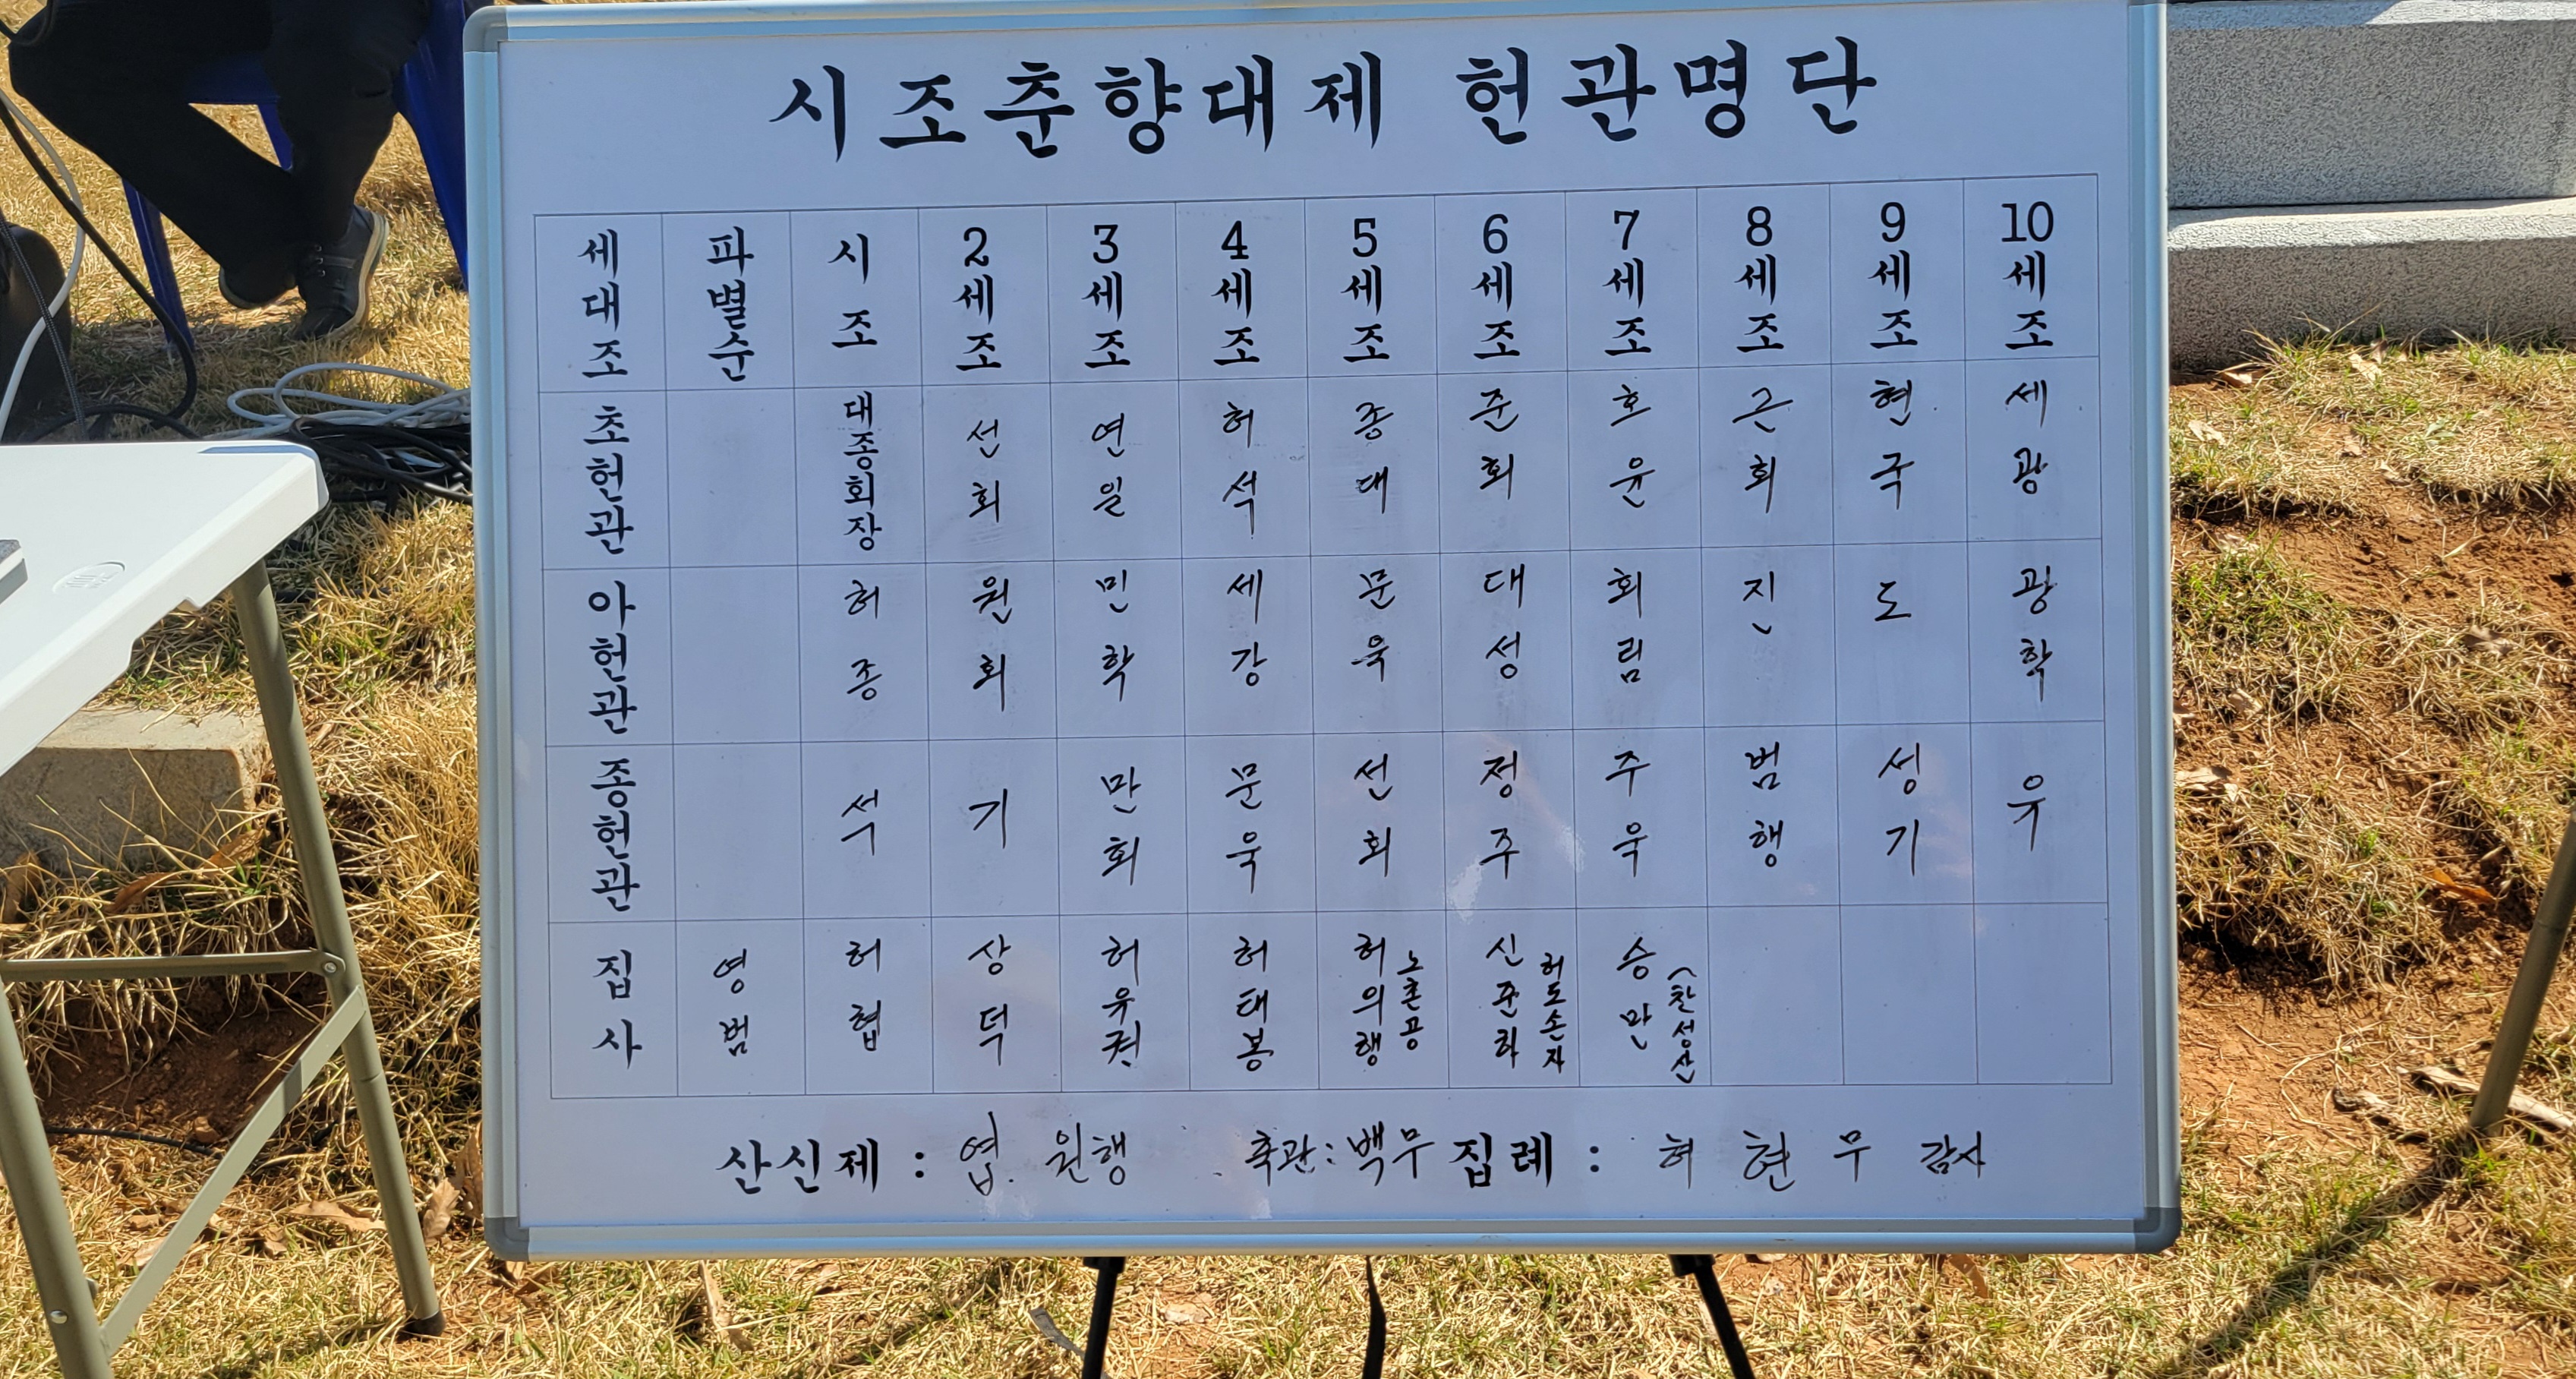 시조춘향대제 헌관명단
세대조 파별순 시조 2세조 3세조 4세조 5세조 6세조 7세조 8세조 9세조 10세조
초헌관 대종회장 선회 연일 허석 종대 준회 호윤 근회 현국 세광
아헌관 허종 원회 민학 세강 문욱 대성 회림 진 도 광학
종헌관 석 기 만회 문욱 선회 정주 주욱 범행 성기 우
집사 영범 허협 상덕 허유권 허태봉 허의행 노촌공 신준화 허도손자 승만 (찬성산)
산신제 : 엽. 원행 축관:백무 집례 : 허현무 감사